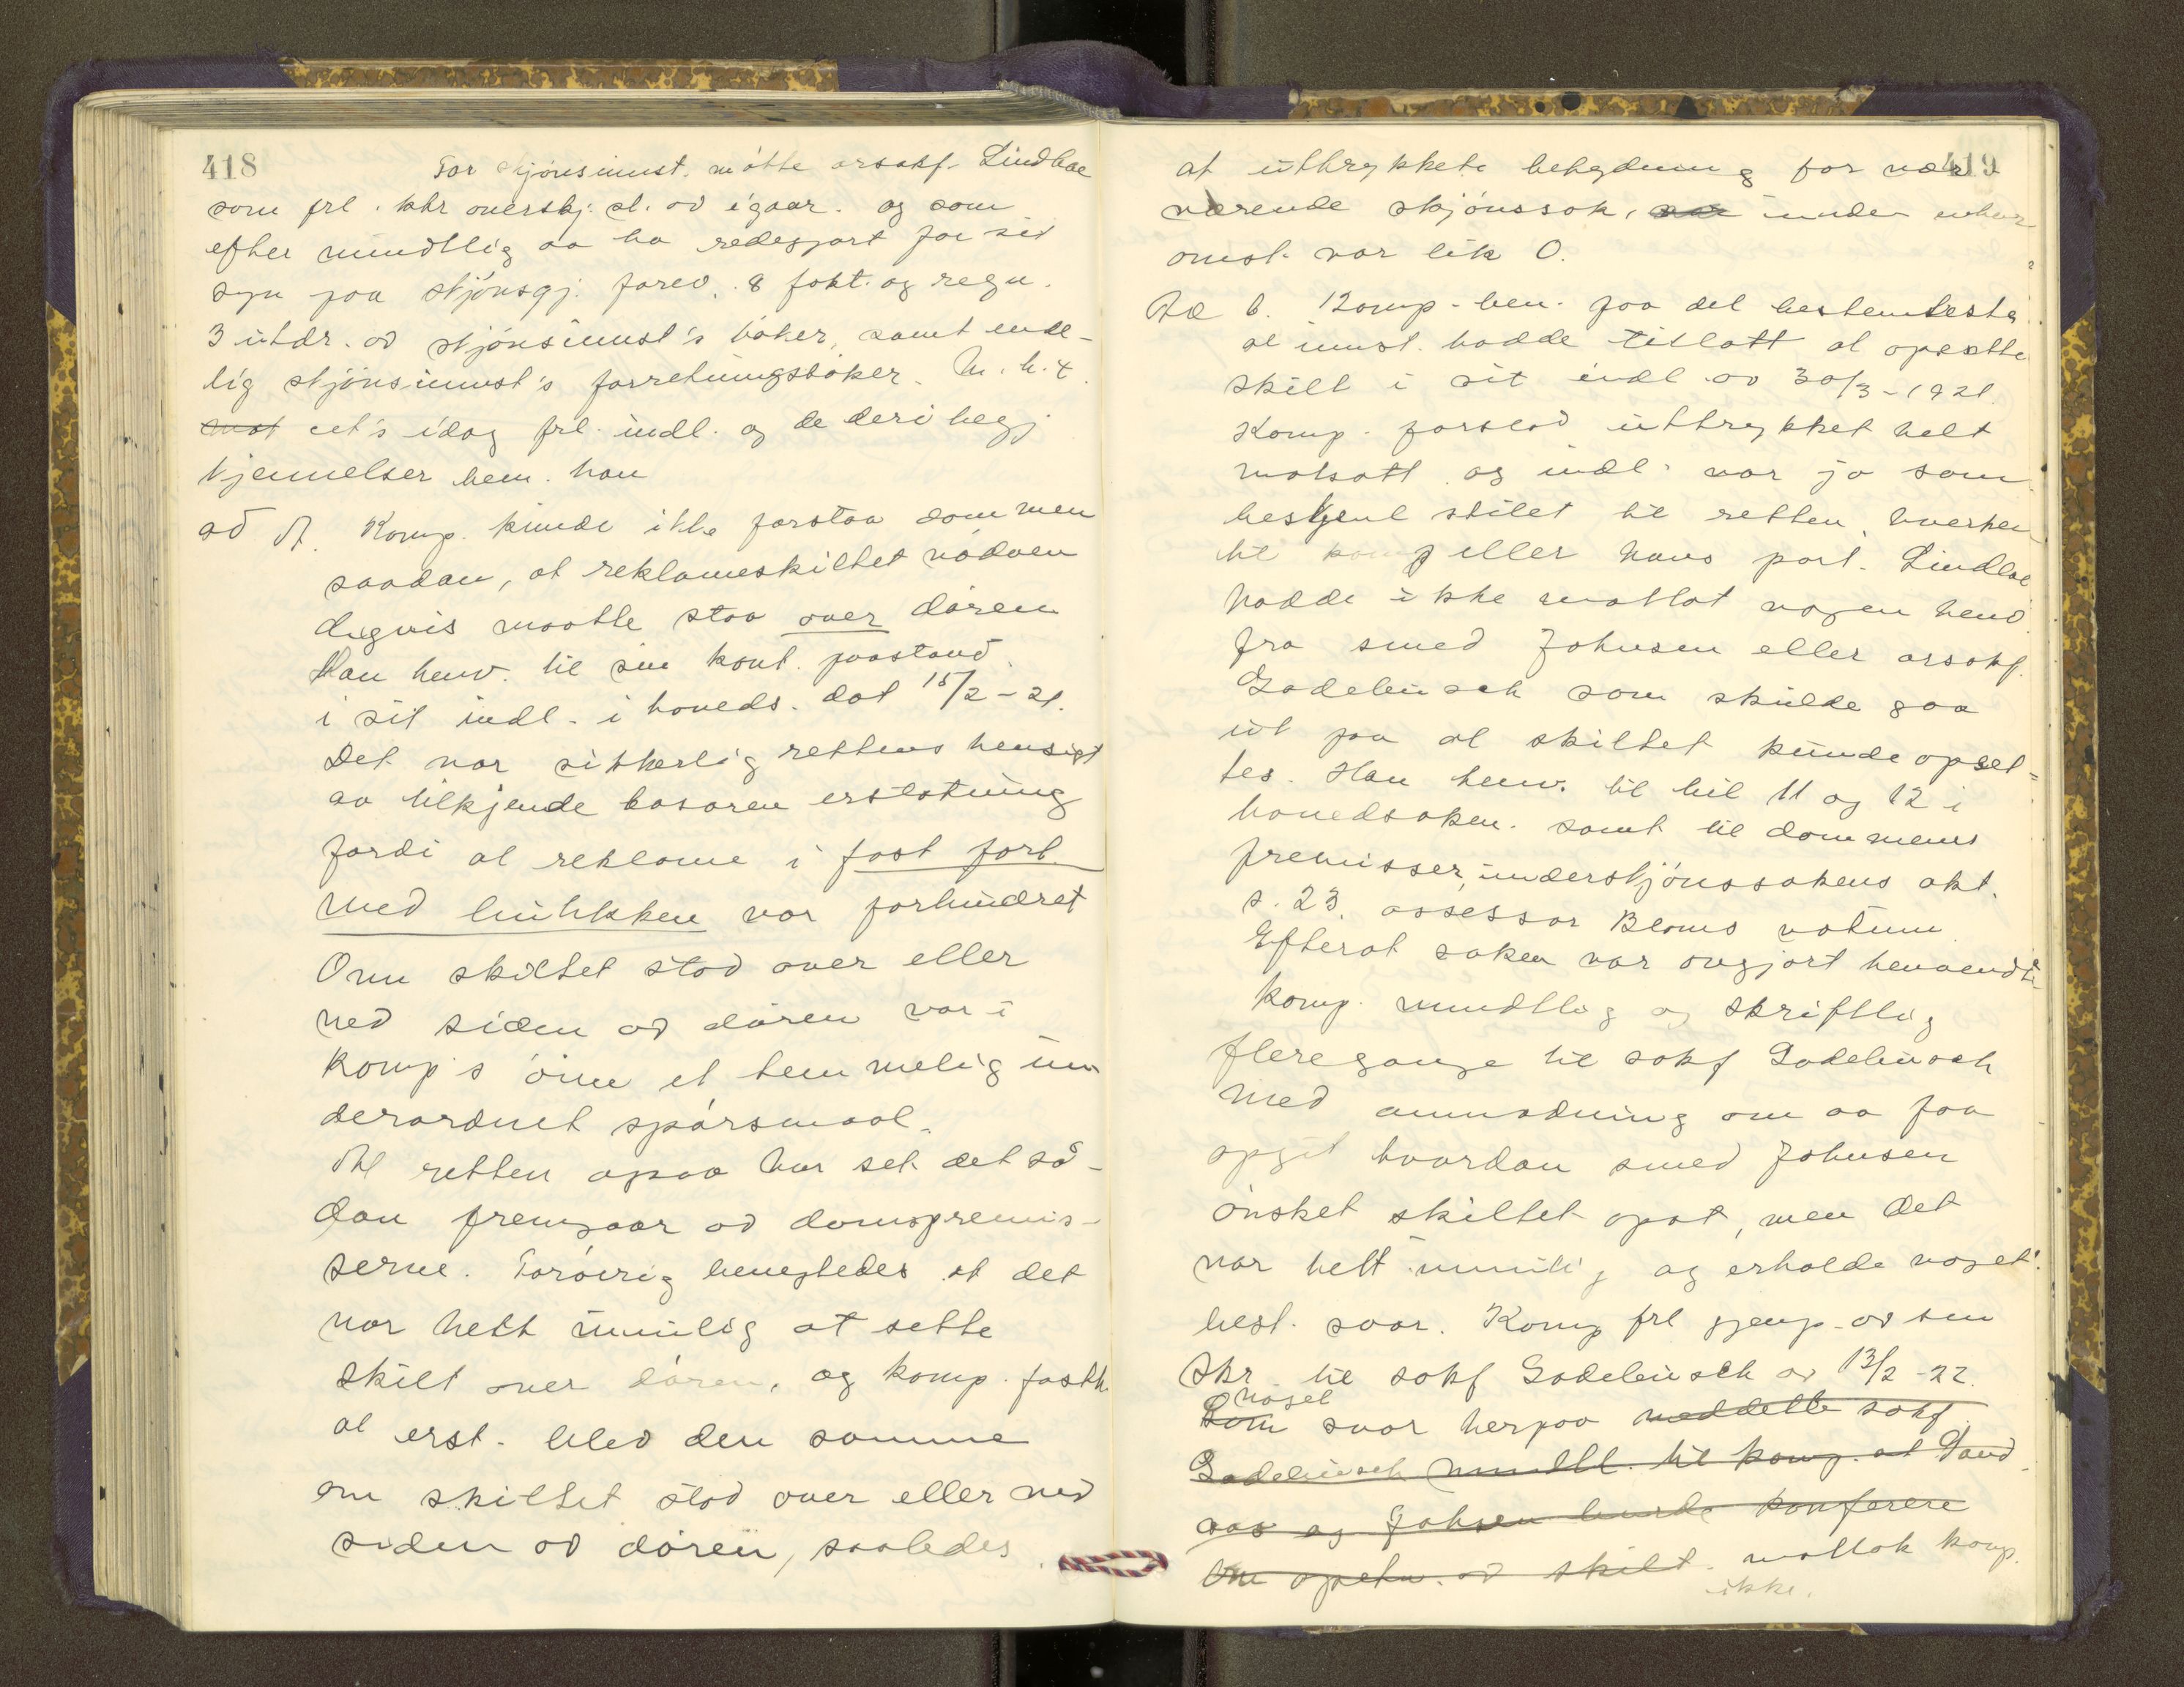 418
For skjönsinnst. mötte orsakf. Lindboe
som frl. kkr overskj. st. av igaar. og som
efter mundtlig aa ha redegjort for sit
syn paa skjönsgj. forev. 8 fakt. og regn.
3 utdr. av skjönsinnst's böker, samt ende-
lig skjönsinnst's forretningsböker. M. h. t.
mot cit's idag frl. indl. og de deri begj
kjennelser bem. han
ad A. Komp. kunde ikke forstaa dommen
saadan, at reklameskiltet nödven
digvis maatte staa over dören
Han henv. til sin kont. paastand
i sit indl. i hoveds. dat 15/2-21.
Det var sikkerlig rettens hensigt
aa tilkjende basaren erstatning
fordi at reklame i fast forb.
med butikken var forhindret
Om skiltet stod over eller
ved siden av dören var i
komp's öine et temmelig un
derordnet spörsmaal.
At retten ogsaa har set det så-
dan fremgaar av domspremis-
serne. Forövrig benegtedes at det
var helt umulig at sette
skilt over dören, og komp. fasth
at erst. blev den samme
om skiltet stod over eller ved
siden av dören, saaledes
419
at uttrykkets betydning for nær
værende skjönssak, var under enhver
omst. var lik 0.
Ad b. Komp. ben. paa det bestemteste
at innst. hadde tillatt at opsætte
skilt i sit indl. av 30/3-1921.
Komp. forstod uttrykket helt
motsatt og indl. var jo som
bekjent stilet til retten, hverken
til komp eller hans part. Lindboe
hadde ikke mottat nogen henv
fra smed Johnsen eller orsakf.
Godebüsch som skulde gaa
ut paa at skiltet kunde opset-
tes. Han henv. til bil 11 og 12 i
hovedsaken. samt til dommens
premisser, underskjönssakens akt.
s. 23. assessor Bloms votum
Efterat saken var avgjort henvendte
komp. mundtlig og skriftlig
fleregange til sakf Godebüsch
med anmodning om aa faa
opgit hvordan smed Johnsen
önsket skiltet opsat, men det
var helt umulig og erholde noget
best. svar. Komp frl gjenp. av sin
Skr. til sakf Godebüsch av 13/2-22.
noget
Som svar herpaa meddelte sakf.
Godebüsch mundtl. til komp. at Sand
aas og Johsen burde konferere
om opsetn. av skilt. mottok komp.
ikke.